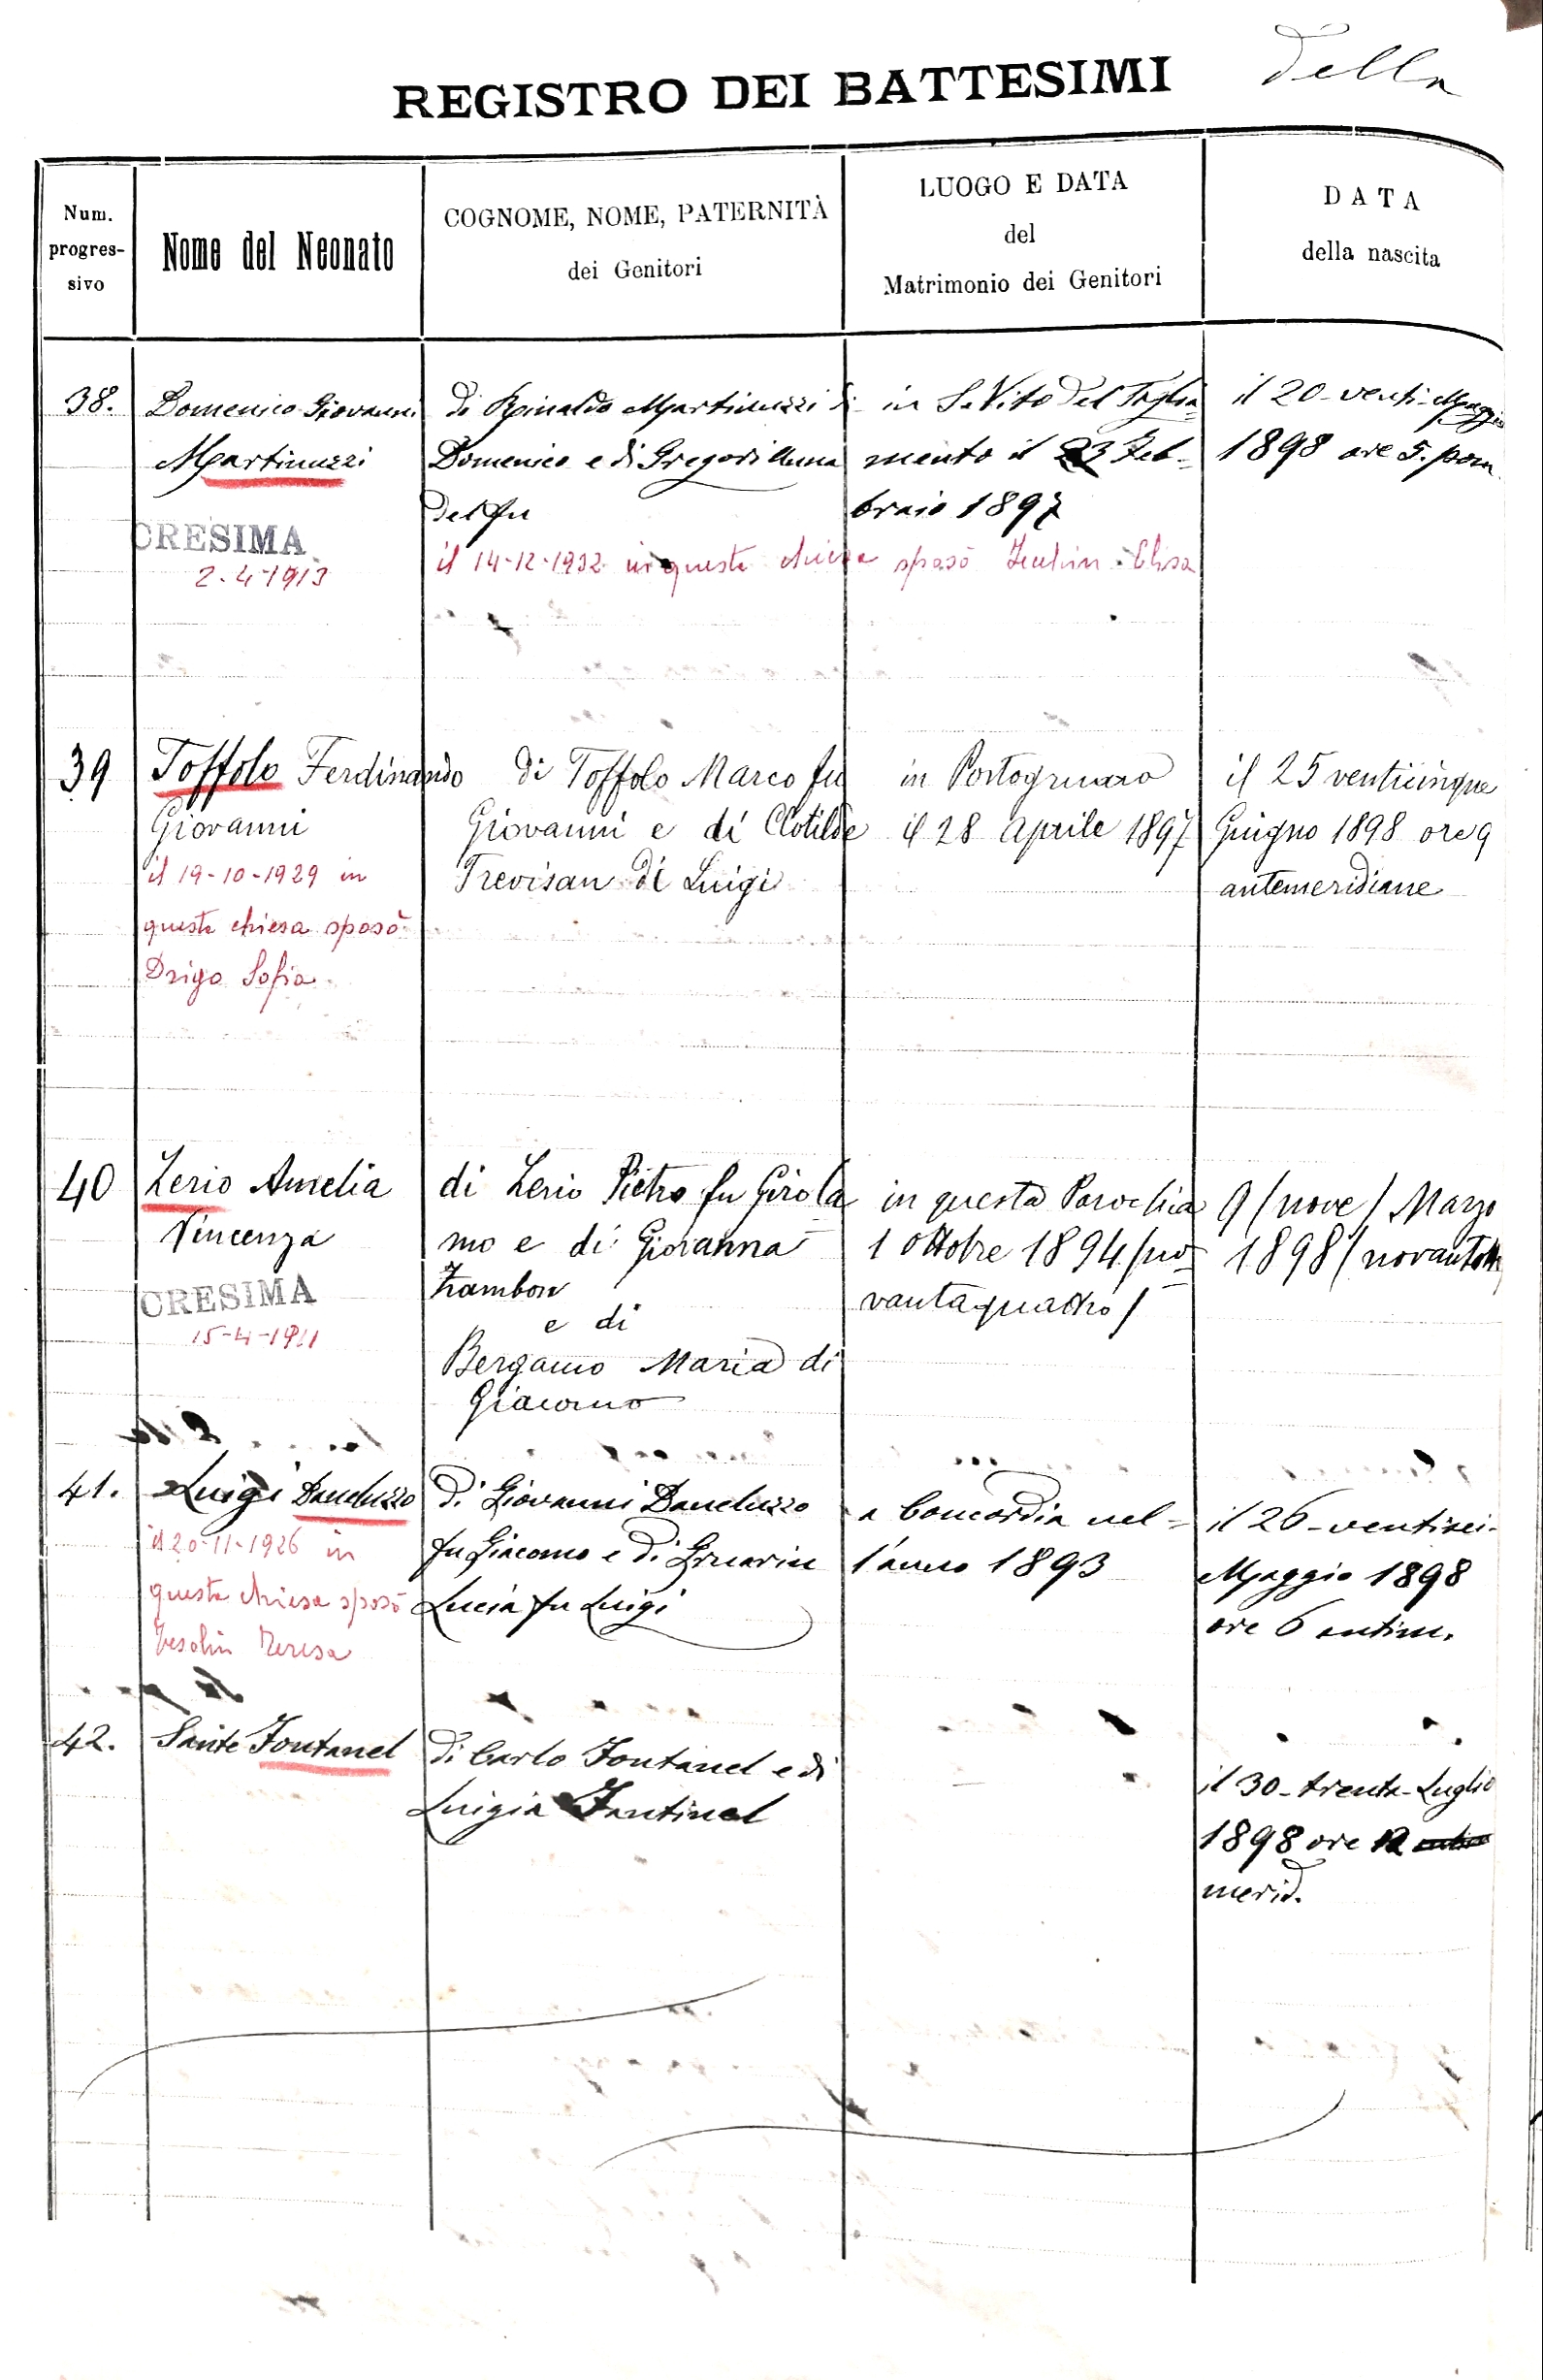 della
REGISTRO DEI BATTESIMI
Num.
progres-
sivo
Nome del Neonato
COGNOME, NOME, PATERNITÀ
dei Genitori
LUOGO E DATA
del
Matrimonio dei Genitori
DATA
della nascita
38.
Domenico Giovanni
Martinuzzi
CRESIMA
2-4-1913
di Rinaldo Martinuzzi di
Domenico e di Gregori Anna
del fu
in S. Vito del Taglia-
mento il 23 Feb-
braio 1897
il 14-12-1932 in questa chiesa sposò Elisa
il 20-venti-Maggio
1898 ore 5. pom.
39
Toffolo Ferdinando
Giovanni
il 19-10-1929 in
questa chiesa sposò
Drigo Sofia.
di Toffolo Marco fu
Giovanni e di Clotilde
Trevisan di Luigi
in Portogruaro
il 28 Aprile 1897
il 25 venticinque
Giugno 1898 ore 9
antemeridiane
40
Zerio Amelia
Vincenza
CRESIMA
15-4-1911
di Zerio Pietro fu Girola
mo e di Giovanna
Zambon
e di
Bergamo Maria di
Giacomo
in questa Parochia
1 Ottobre 1894 /no-
vantaquattro/
9 /nove/ Marzo
1898 /novantotto
41.
Luigi Daneluzzo
il 20-11-1926 in
questa chiesa sposò
Tesolin Teresa
di Giovanni Daneluzzo
fu Giacomo e di Gruarin
Lucia fu Luigi
a Concordia nel-
l'anno 1893
il 26-ventisei-
Maggio 1898
ore 6 antim.
42.
Sante Fontanel
di Carlo Fontanel e di
Luigia Fantinel
il 30-trenta-Luglio
1898 ore 12
merid.